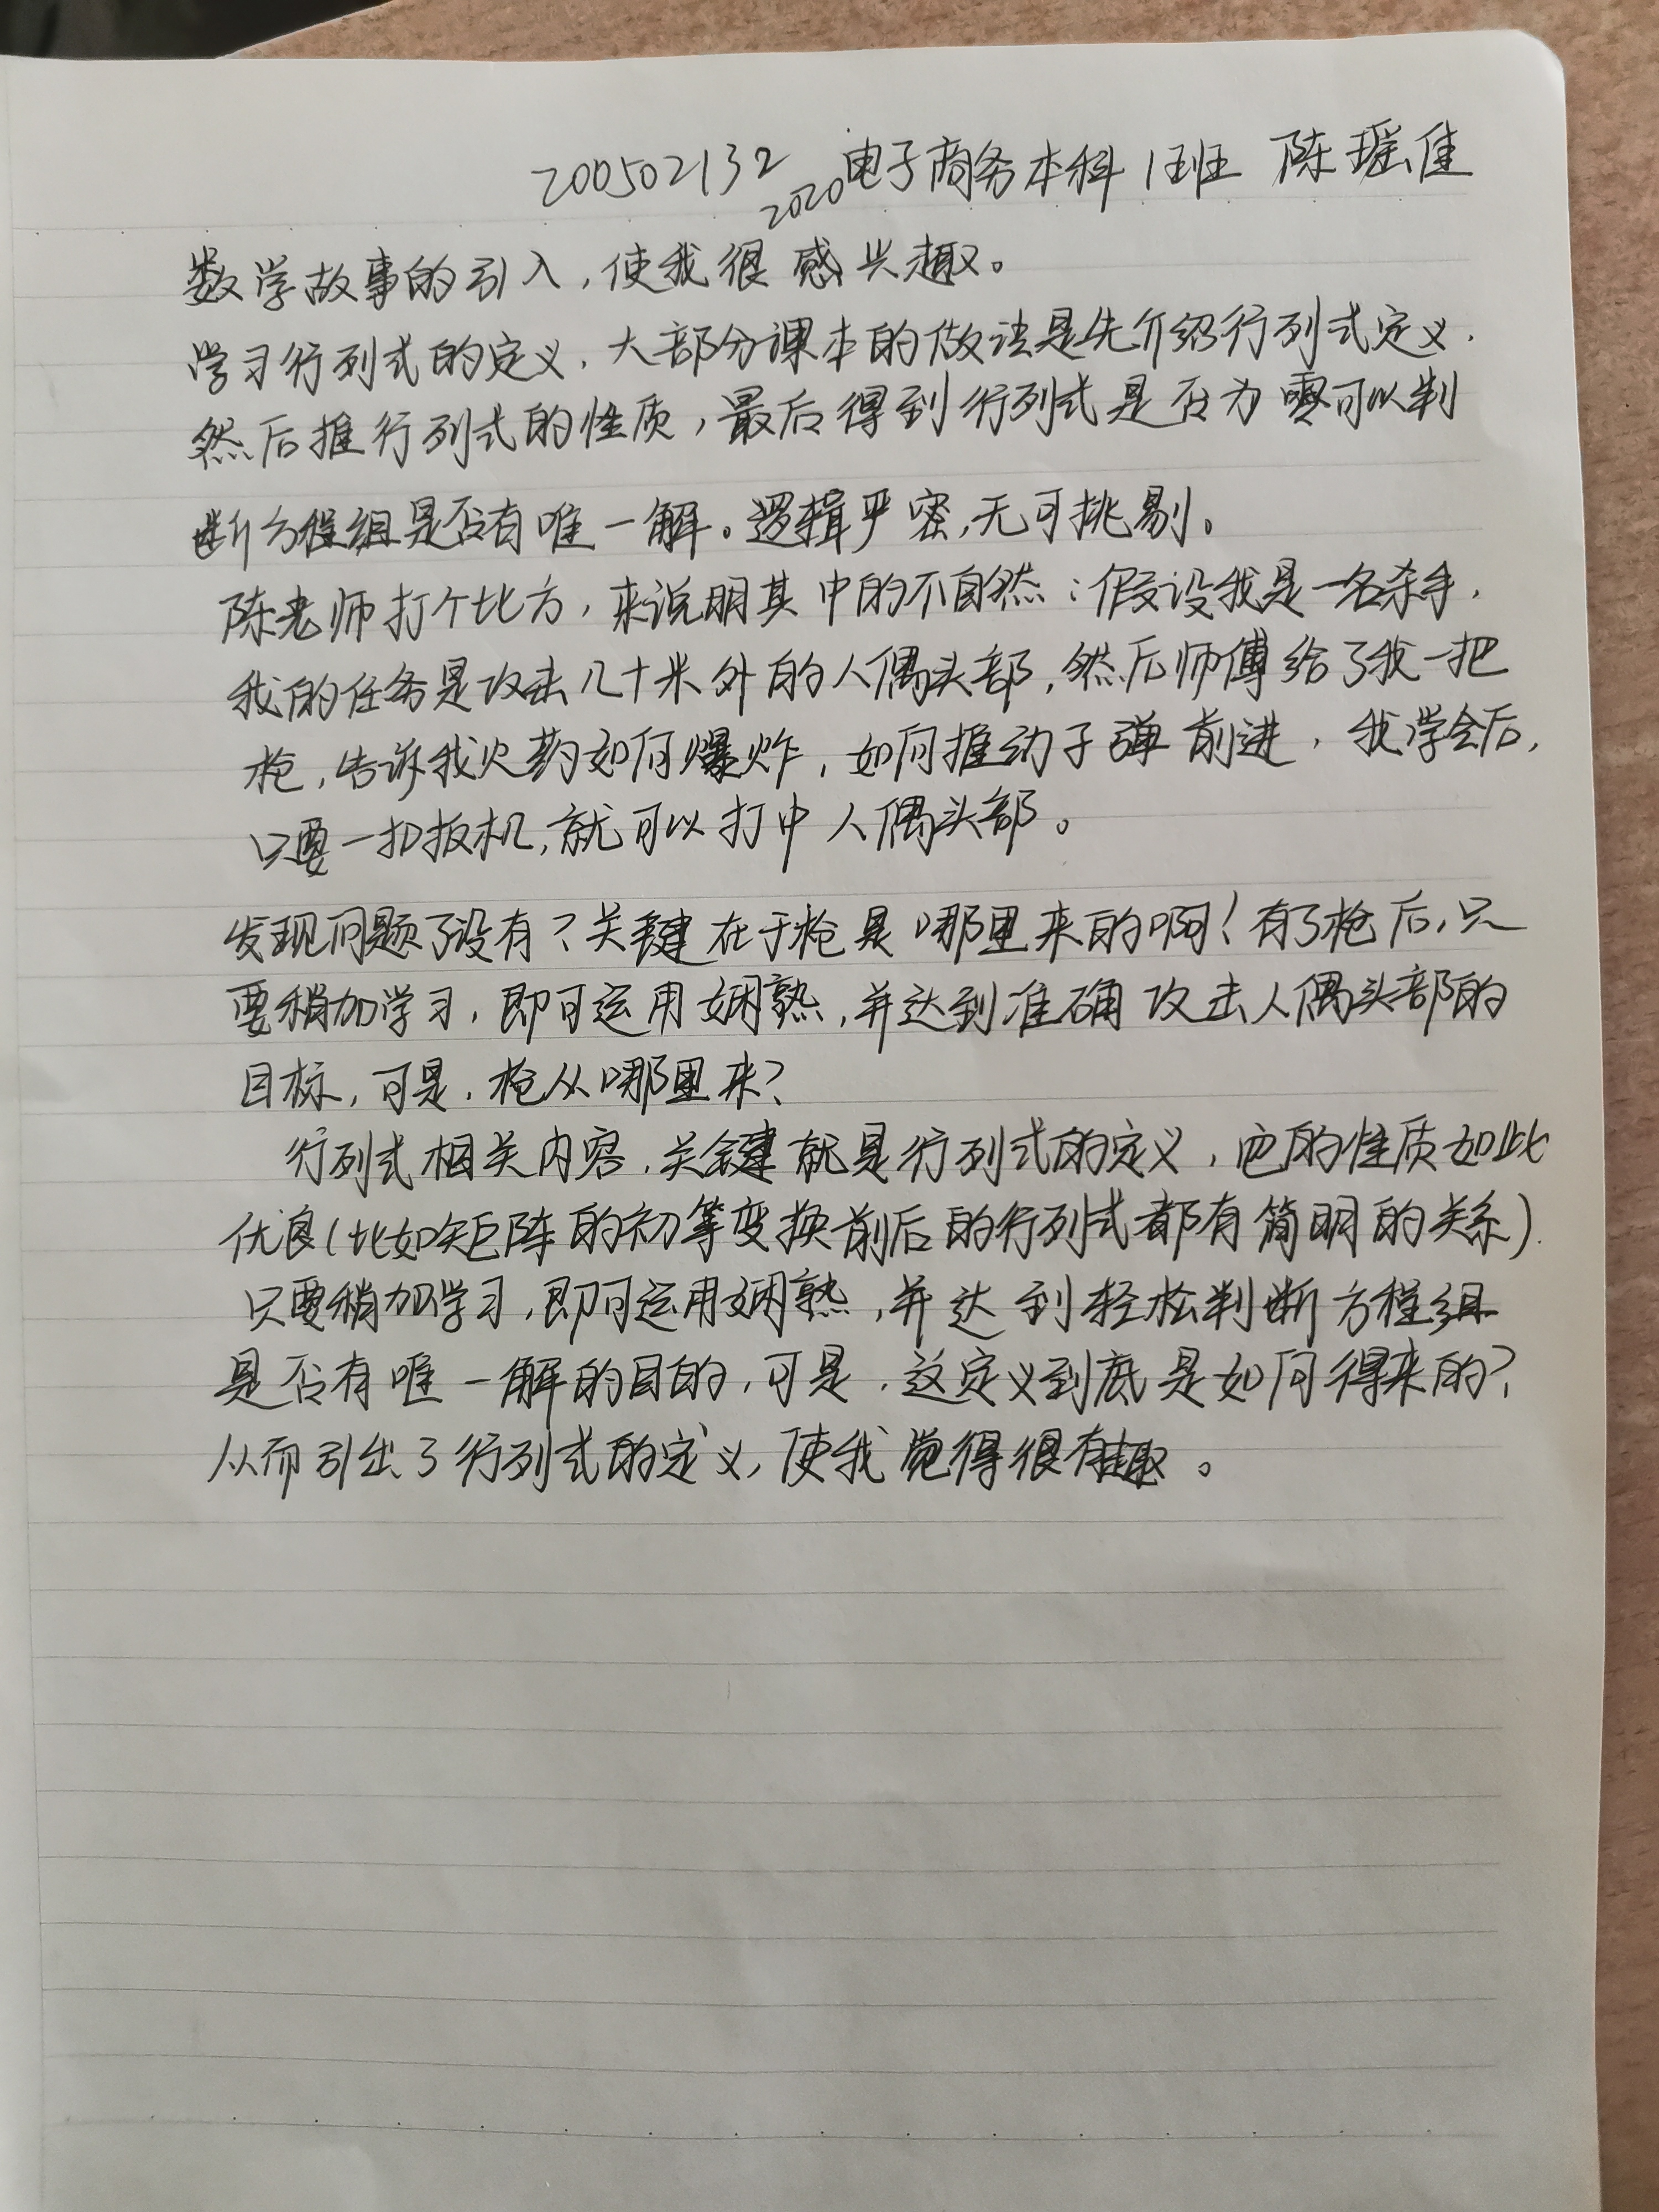 200502132 2020电子商务本科1班 陈瑶佳
数学故事的引入,使我很感兴趣。
学习行列式的定义,大部分课本的做法是先介绍行列式定义,
然后推行列式的性质,最后得到行列式是否为零可以判
断方程组是否有唯一解。逻辑严密,无可挑剔。
陈老师打个比方,来说明其中的不自然:假设我是一名杀手,
我的任务是攻击几十米外的人偶头部,然后师傅给了我一把
枪,告诉我火药如何爆炸,如何推动子弹前进,我学会后,
只要一扣扳机,就可以打中人偶头部。
发现问题了没有?关键在于枪是哪里来的啊!有了枪后,只
要稍加学习,即可运用娴熟,并达到准确攻击人偶头部的
目标,可是,枪从哪里来?
行列式相关内容,关键就是行列式的定义,它的性质如此
优良(比如矩阵的初等变换前后的行列式都有简明的关系).
只要稍加学习,即可运用娴熟,并达到轻松判断方程组
是否有唯一解的目的,可是,这定义到底是如何得来的?
从而引出了行列式的定义,使我觉得很有趣。